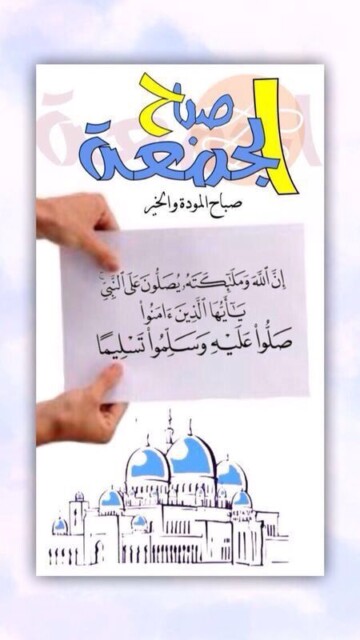 صباح
الجمعة
صباح المودة والخير
إِنَّ ٱللَّهَ وَمَلَـٰٓئِكَتَهُۥ يُصَلُّونَ عَلَى ٱلنَّبِيِّ
يَـٰٓأَيُّهَا ٱلَّذِينَ ءَامَنُوا۟
صَلُّوا۟ عَلَيْهِ وَسَلِّمُوا۟ تَسْلِيمًا